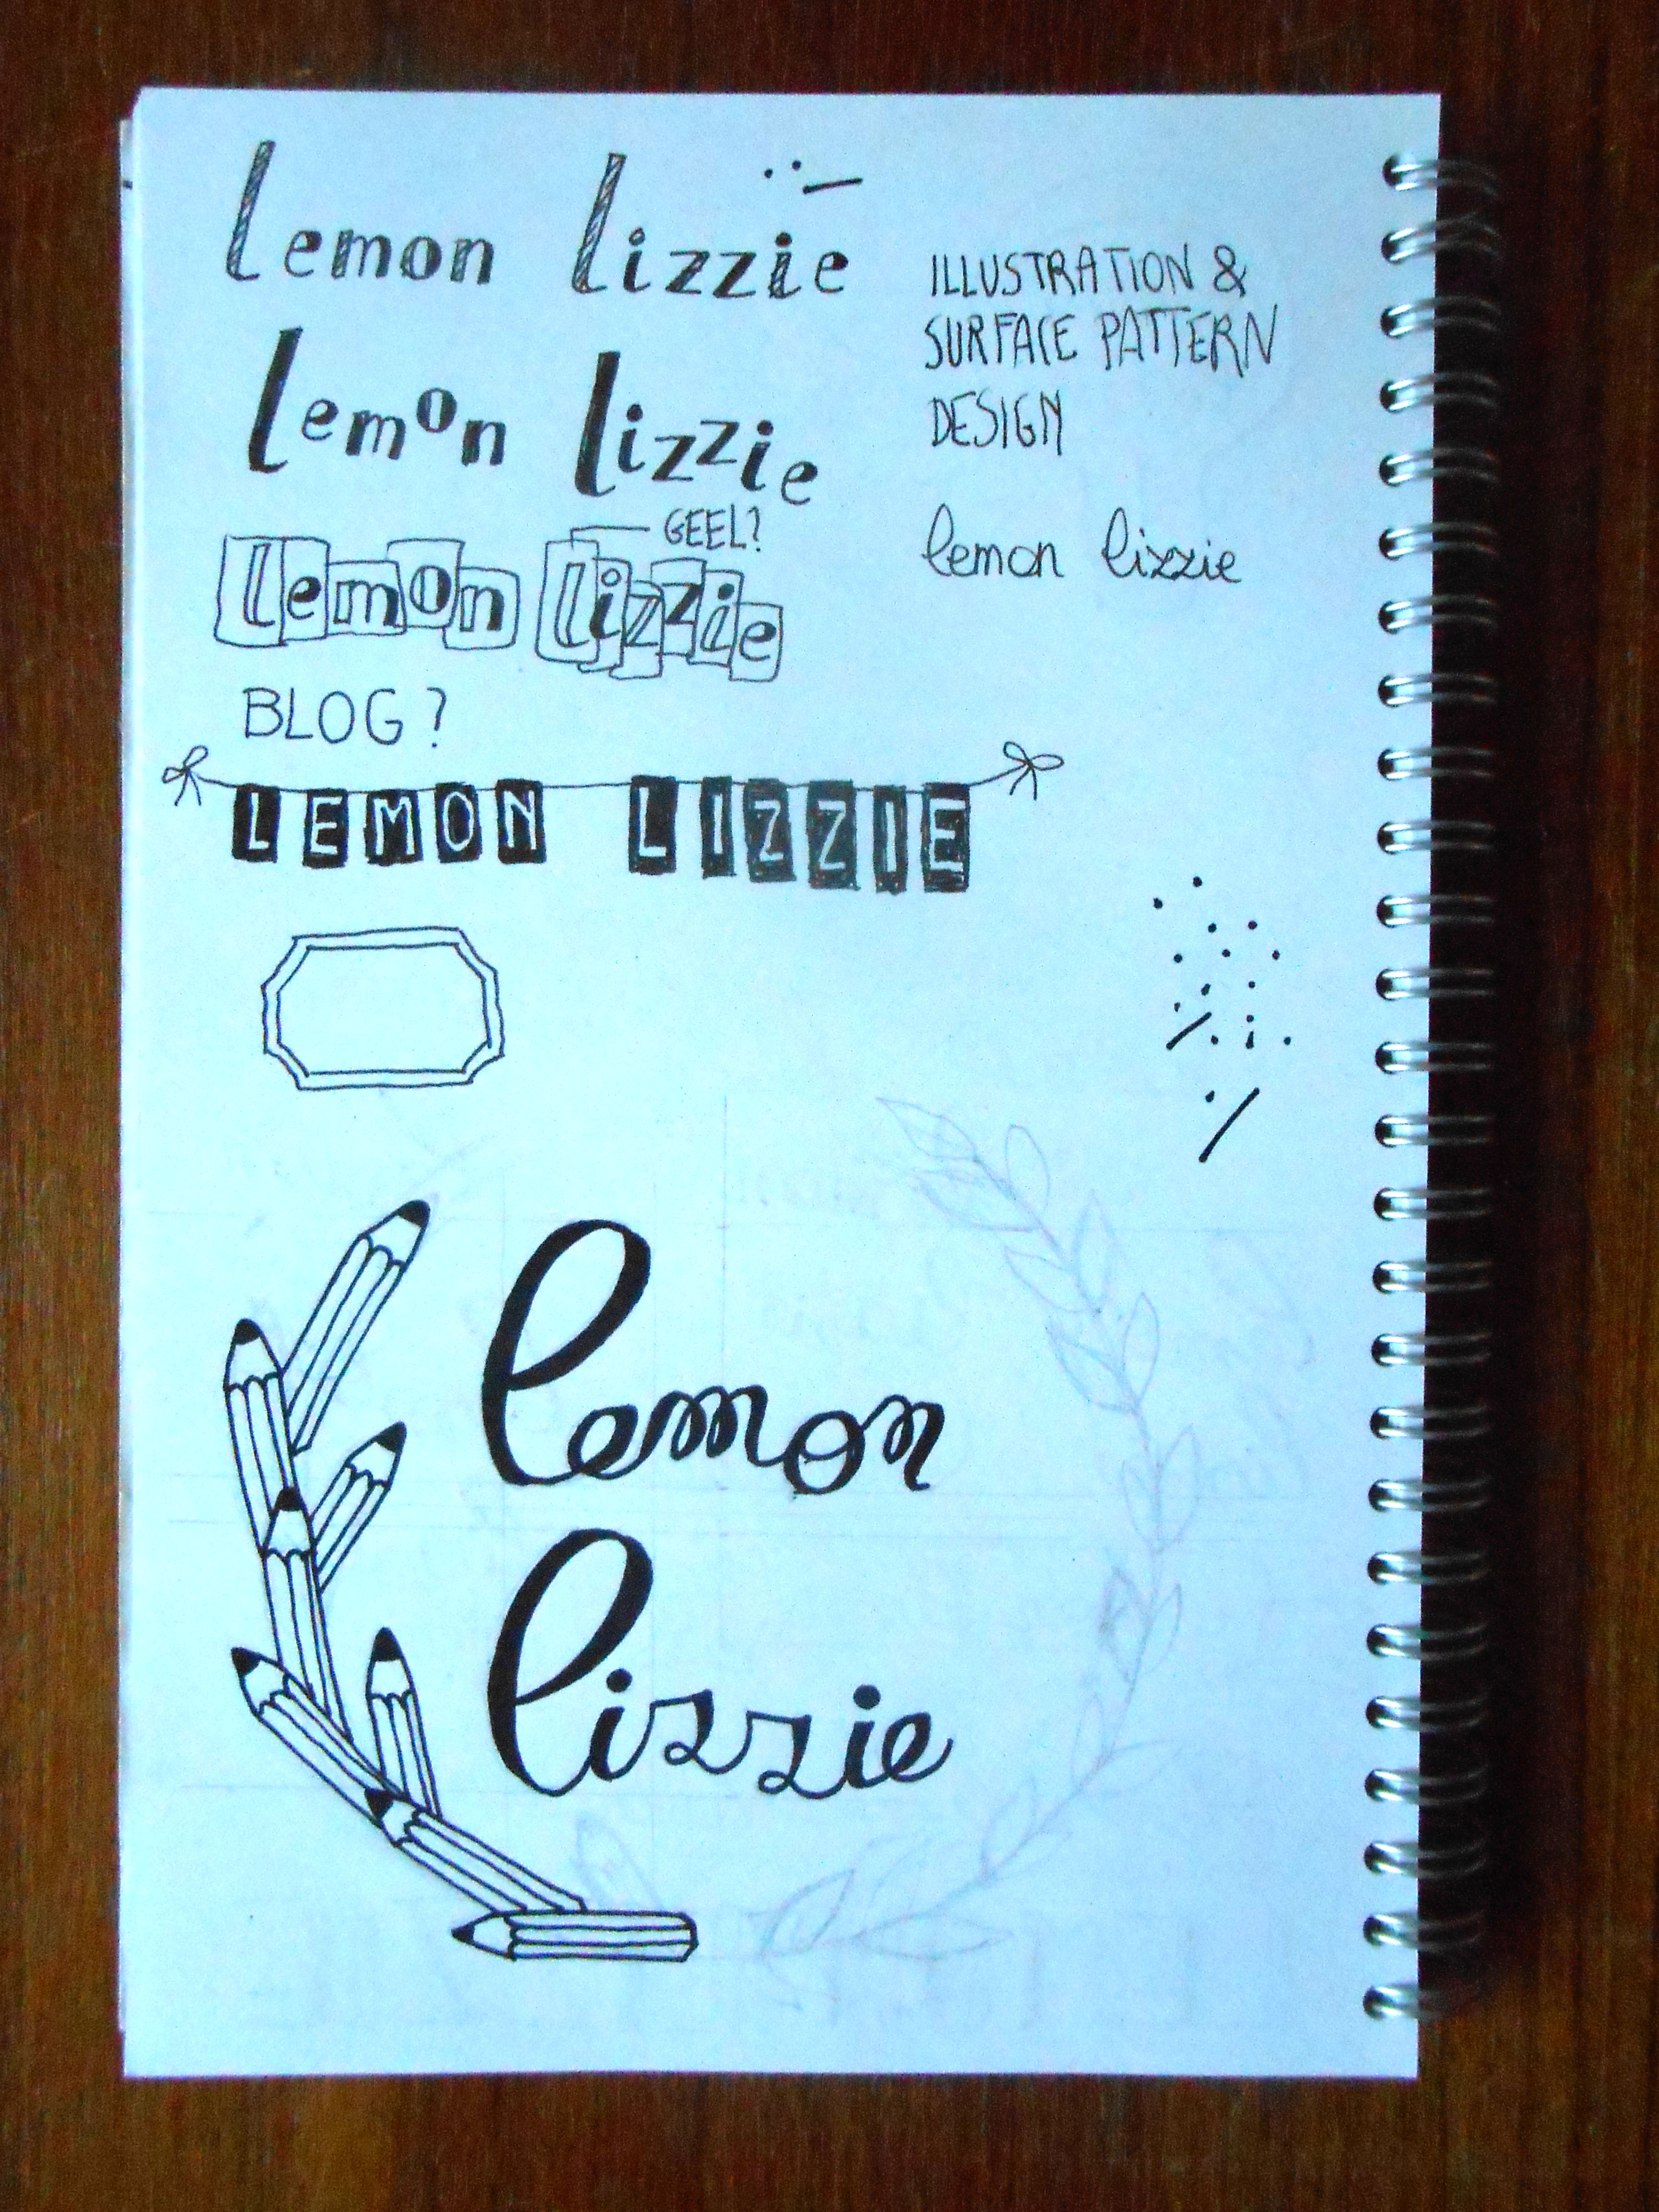 lemon lizzie
ILLUSTRATION &
SURFACE PATTERN
DESIGN
lemon lizzie
GEEL?
lemon lizzie
lemon lizzie
BLOG?
LEMON LIZZIE
lemon
lizzie